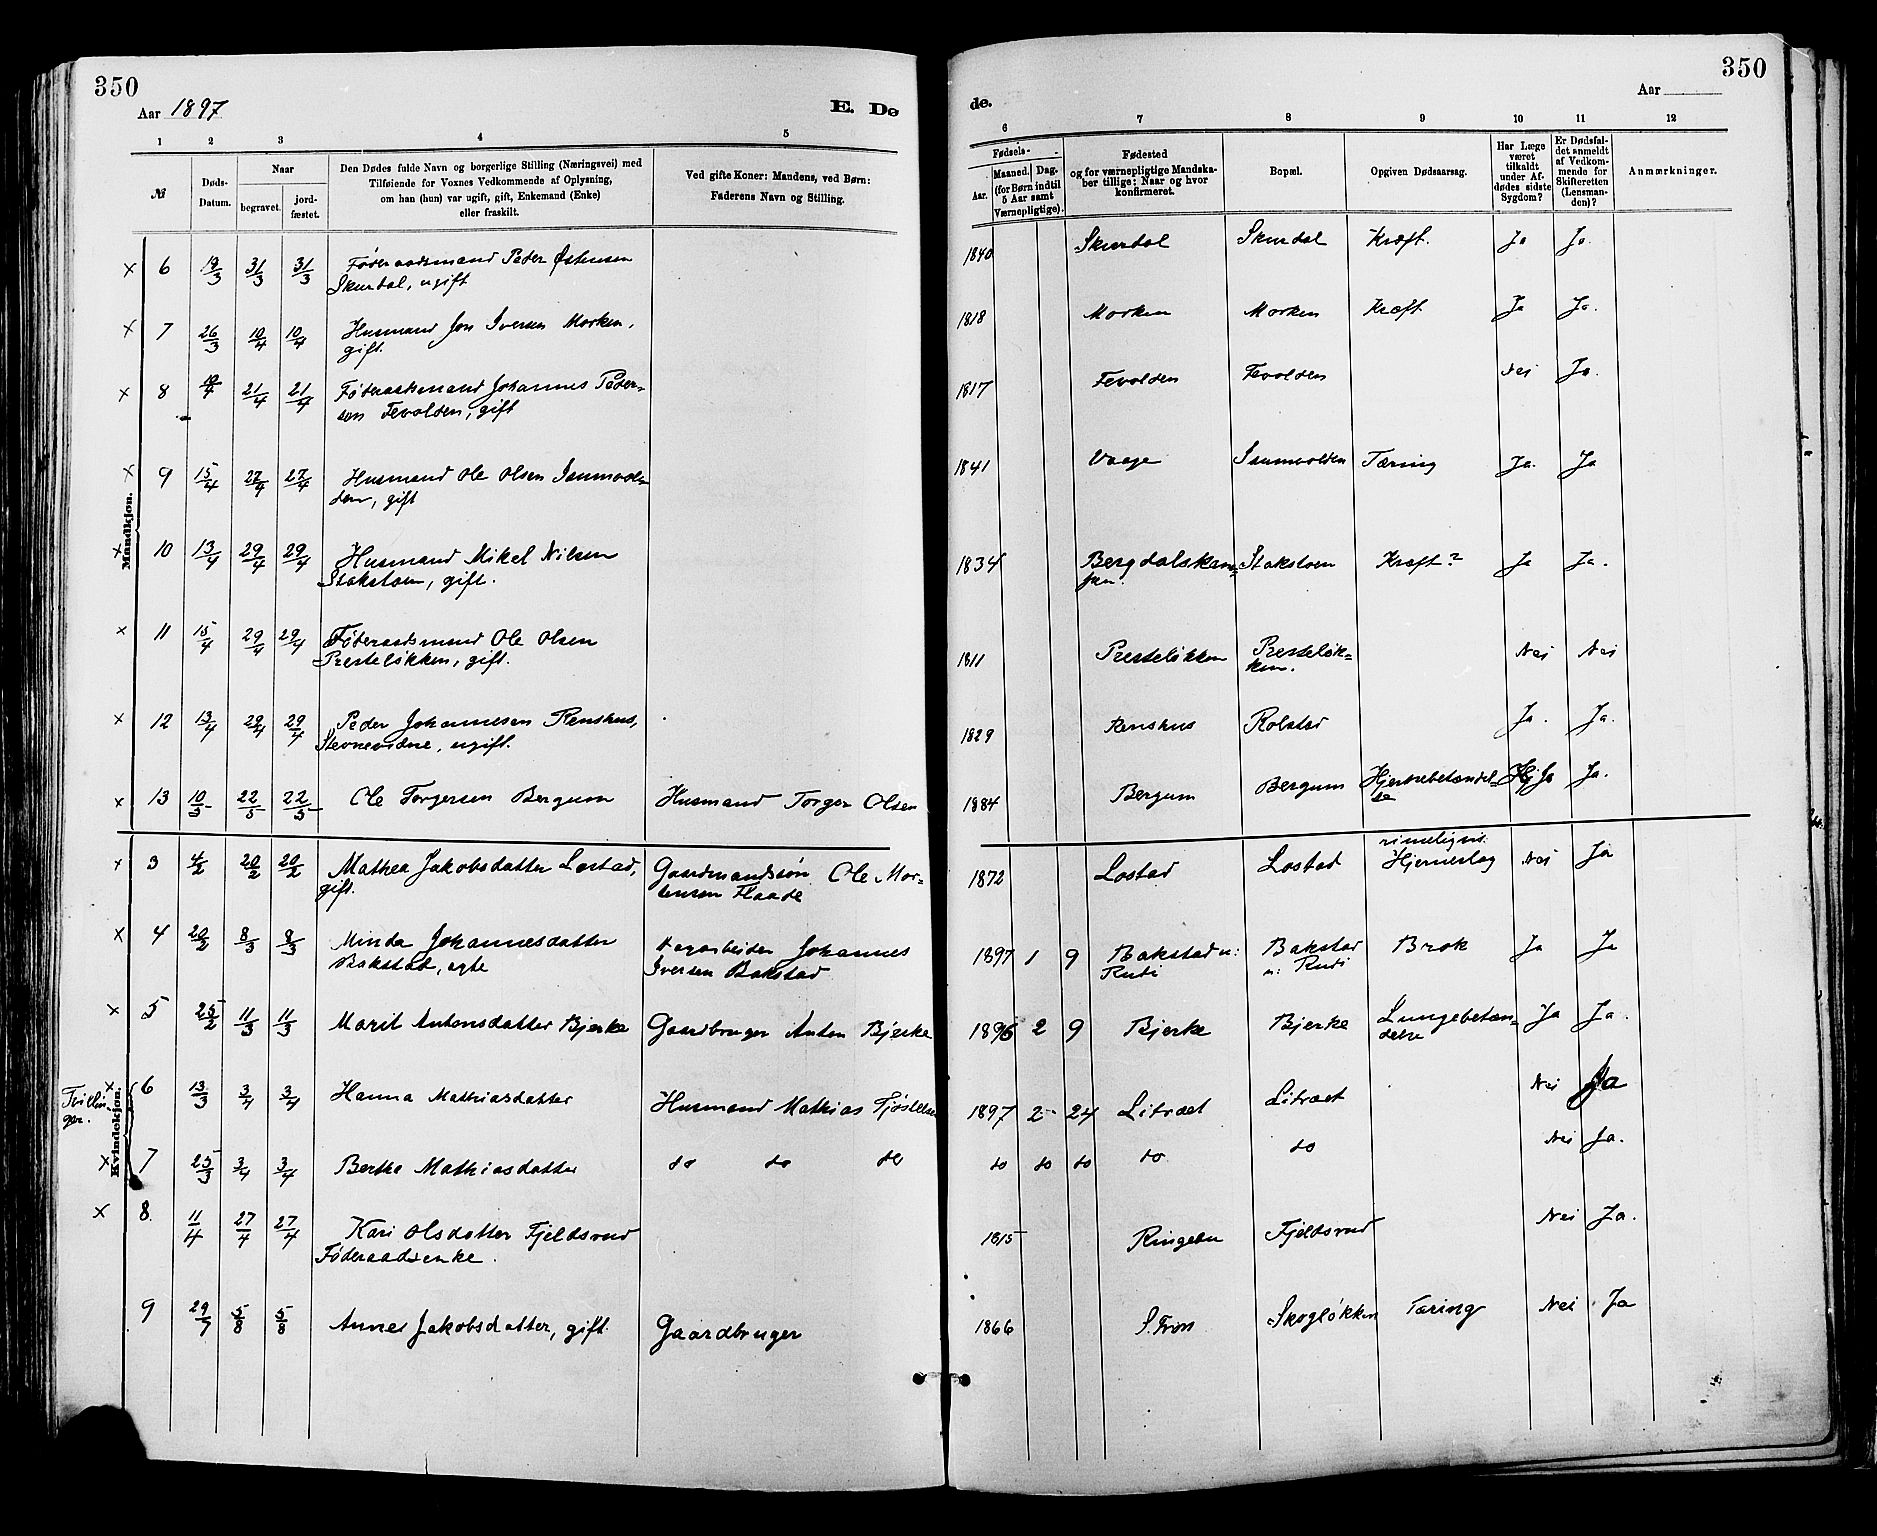 350
Aar 1897
E. Dø
de.
350
Aar
1 2 3 4 5 6 7 8 9 10 11 12
№
Døds-Datum.
Naar
begravet.
jord-fæstet.
Den Dødes fulde Navn og borgerlige Stilling (Næringsvei) med
Tilføiende for Voxnes Vedkommende af Oplysning,
om han (hun) var ugift, gift, Enkemand (Enke)
eller fraskilt.
Ved gifte Koner: Mandens, ved Børn:
Faderens Navn og Stilling.
Fødsels-
Aar.
Maaned. Dag.
(for Børn indtil
5 Aar samt
Værnepligtige).
Fødested
og for værnepligtige Mandska-
ber tillige: Naar og hvor
konfirmeret.
Bopæl.
Opgiven Dødsaarsag.
Har Læge
været
tilkaldt
under Af-
dødes sidste
Sygdom?
Er Dødsfal-
det anmeldt
af Vedkom-
mende for
Skifteretten
(Lensman-
den)?
Anmærkninger.
Mandkjøn.
x 6 19/3 31/3 31/3 Føderaadsmand Peder Østensen 1840 Skurdal Skurdal Kræft. Ja Ja.
Skurdal, ugift
x 7 26/3 10/4 10/4 Husmand Jon Iversen Morken, 1818 Morken Morken Kræft Ja Ja.
gift.
x 8 10/4 21/4 21/4 Føderaadsmand Johannes Peder- 1817 Fevolden Fevolden Nei Ja.
sen Fevolden, gift
x 9 15/4 27/4 27/4 Husmand Ole Olsen 1841 Vaage Tæring Ja. Ja
den, gift
x 10 13/4 29/4 29/4 Husmand Mikel Nilsen 1834 Stakstoen Kræft? Ja Ja.
Stakstoen, gift.
x 11 15/4 29/4 29/4 Føderaadsmand Ole Olsen 1811 Presteløkken Presteløk- Nei Nei
Presteløkken, gift. ken.
x 12 13/4 29/4 29/4 Peder Johannesen Renshus, 1829 Renshus Rolstad Ja. Ja.
Stevnevidne, ugift.
x 13 10/5 22/5 22/5 Ole Torgersen Bergum Husmand Torger Olsen 1884 Bergum Bergum Hjertebetændel- Ja Ja.
se
Kvindekjøn.
rimeligvis
x 3 4/2 20/2 20/2 Mathea Jakobsdatter Lostad, Gaardmandssøn Ole Mor- 1872 Lostad Lostad Hjerneslag Nei Ja
gift. tensen Flaade
x 4 20/2 8/3 8/3 Minda Johannesdatter Dagarbeider Johannes 1897 1 9 Bakstad u: Bakstad Brok Ja Ja
Bakstad, egte Iversen Bakstad Rudi u: Rudi
x 5 25/2 11/3 11/3 Marit Antonsdatter Bjerke Gaardbruger Anton Bjerke 1896 2 9 Bjerke Bjerke Lungebetæn- Ja Ja.
delse
Tvillin-
ger.
x 6 13/3 3/4 3/4 Hanna Mathiasdatter Husmand Mathias 1897 2 24 Litræet Litræet Nei Ja
x 7 25/3 3/4 3/4 Berthe Mathiasdatter do do do do do do do do Nei Ja.
x 8. 11/4 27/4 27/4 Kari Olsdatter Fjeldsrud 1815 Ringebu Fjeldsrud Nei Ja.
Føderaadsenke.
9 29/7 5/8 5/8 Anne Jakobsdatter, gift. Gaardbruger 1866 S. Fron Skogløkken Tæring Nei Ja